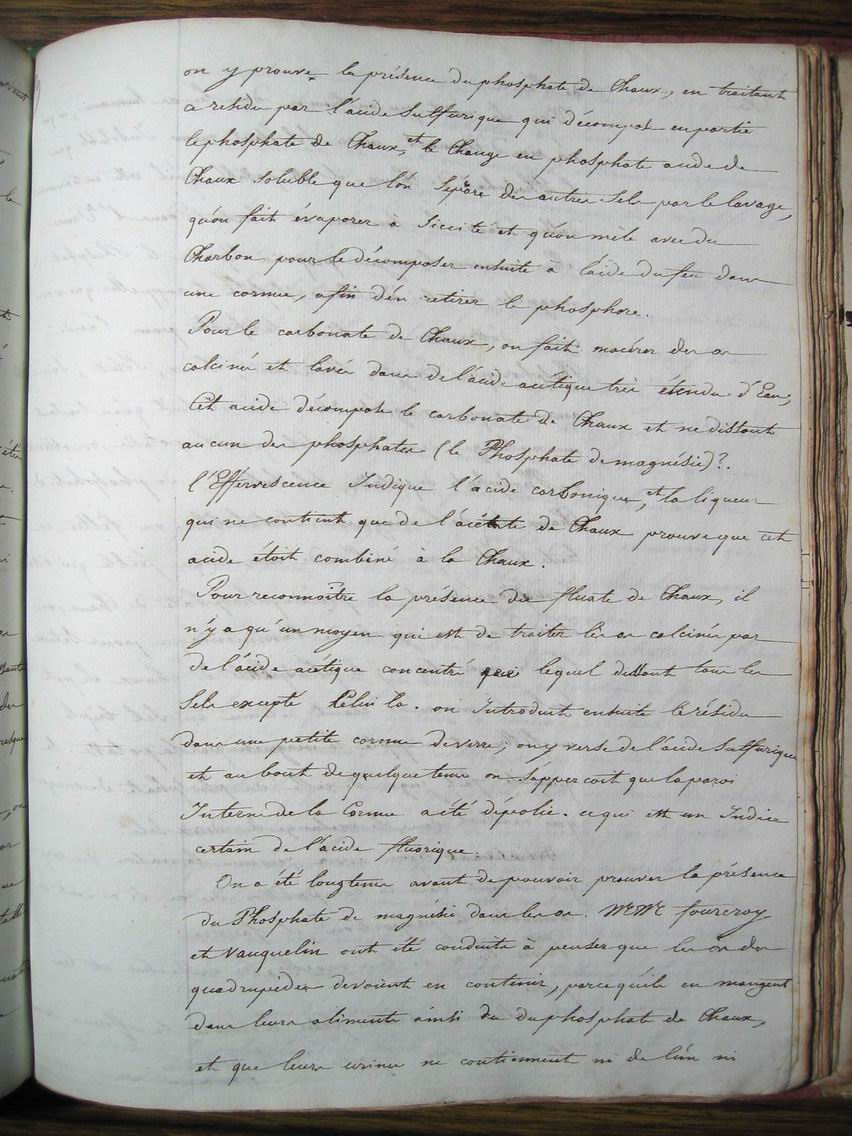 on y prouve la présence du phosphate de Chaux, en traitant
ce résidu par l'acide sulfurique qui décompose en partie
le phosphate de Chaux, et le Change en phosphate acide de
Chaux soluble que l'on sépare des autres Sels par le lavage,
qu'on fait évaporer à Siccité et qu'on mêle avec du
Charbon pour le décomposer ensuite à l'aide du feu dans
une cornue, afin d'en retirer le phosphore.
Pour le carbonate de Chaux, on fait macérer des os
calcinés et lavés dans de l'acide acétique très étendu d'Eau;
Cet acide décompose le carbonate de Chaux et ne dissout
aucun des phosphates (le Phosphate de magnésie)?.
l'Effervescence Indique l'acide carbonique, et la liqueur
qui ne contient que de l'acétate de Chaux prouve que cet
acide étoit combiné à la Chaux.
Pour reconnoître la présence du fluate de Chaux, il
n'y a qu'un moyen qui est de traiter les os calcinés par
de l'acide acétique concentré lequel dissout tous les
Sels excepté Celui là. on Introduit ensuite le résidu
dans une petite cornue de verre; on y verse de l'acide Sulfurique
et au bout de quelque tems on s'apperçoit que la paroi
Interne de la Cornue a été dépolie. ce qui est un Indice
certain de l'acide fluorique.
On a été longtems avant de pouvoir prouver la présence
du Phosphate de magnésie dans les os. MrMr fourcroy
et Vauquelin ont été conduits à penser que les os des
quadrupèdes devoient en contenir, parcequ'ils en mangent
dans leurs aliments ainsi du phosphate de Chaux,
et que leurs urines ne contiennent ni de l'un ni